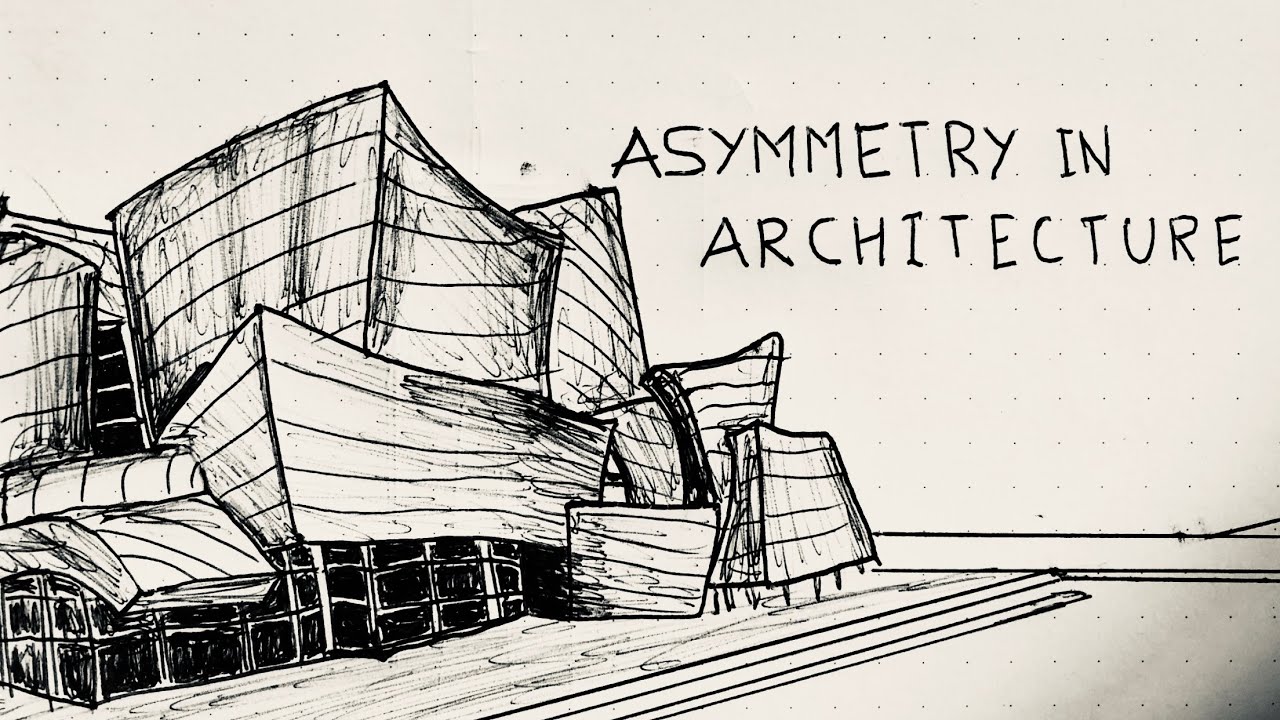 ASYMMETRY IN
ARCHITECTURE